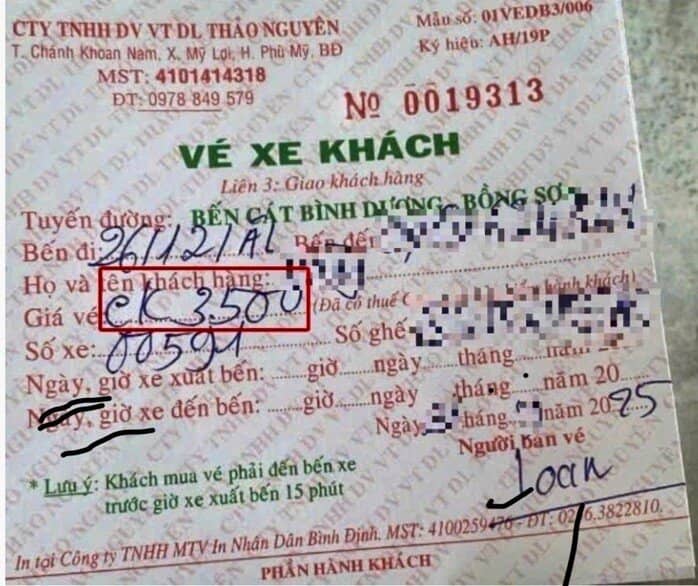 CTY TNHH DV VT DL THẢO NGUYÊN
T. Chánh Khoan Nam, X. Mỹ Lợi, H. Phù Mỹ, BĐ
MST: 4101414318
ĐT: 0978 849 579
Mẫu số: 01VEDB3/006
Ký hiệu: AH/19P
No 0019313
VÉ XE KHÁCH
Liên 3: Giao khách hàng
Tuyến đường: BẾN CÁT BÌNH DƯƠNG - BỒNG SƠN
Bến đi: 26/12/ÂL Bến đến
Họ và tên khách hàng:
Giá vé: CK 3.500 (Đã có thuế hành khách)
Số xe: 00591 Số ghế:
Ngày, giờ xe xuất bến: giờ ngày tháng năm 20
Ngày, giờ xe đến bến: giờ ngày tháng năm 20
Ngày tháng năm 2025
Người bán vé
Loan
* Lưu ý: Khách mua vé phải đến bến xe
trước giờ xe xuất bến 15 phút
In tại Công ty TNHH MTV In Nhân Dân Bình Định. MST: 4100259476 - ĐT: 0256.3822810.
PHẦN HÀNH KHÁCH